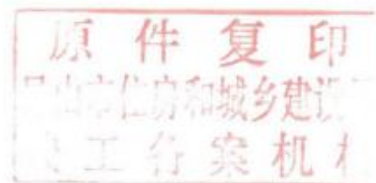 原件复印
山市住房和城乡建设
工备案机